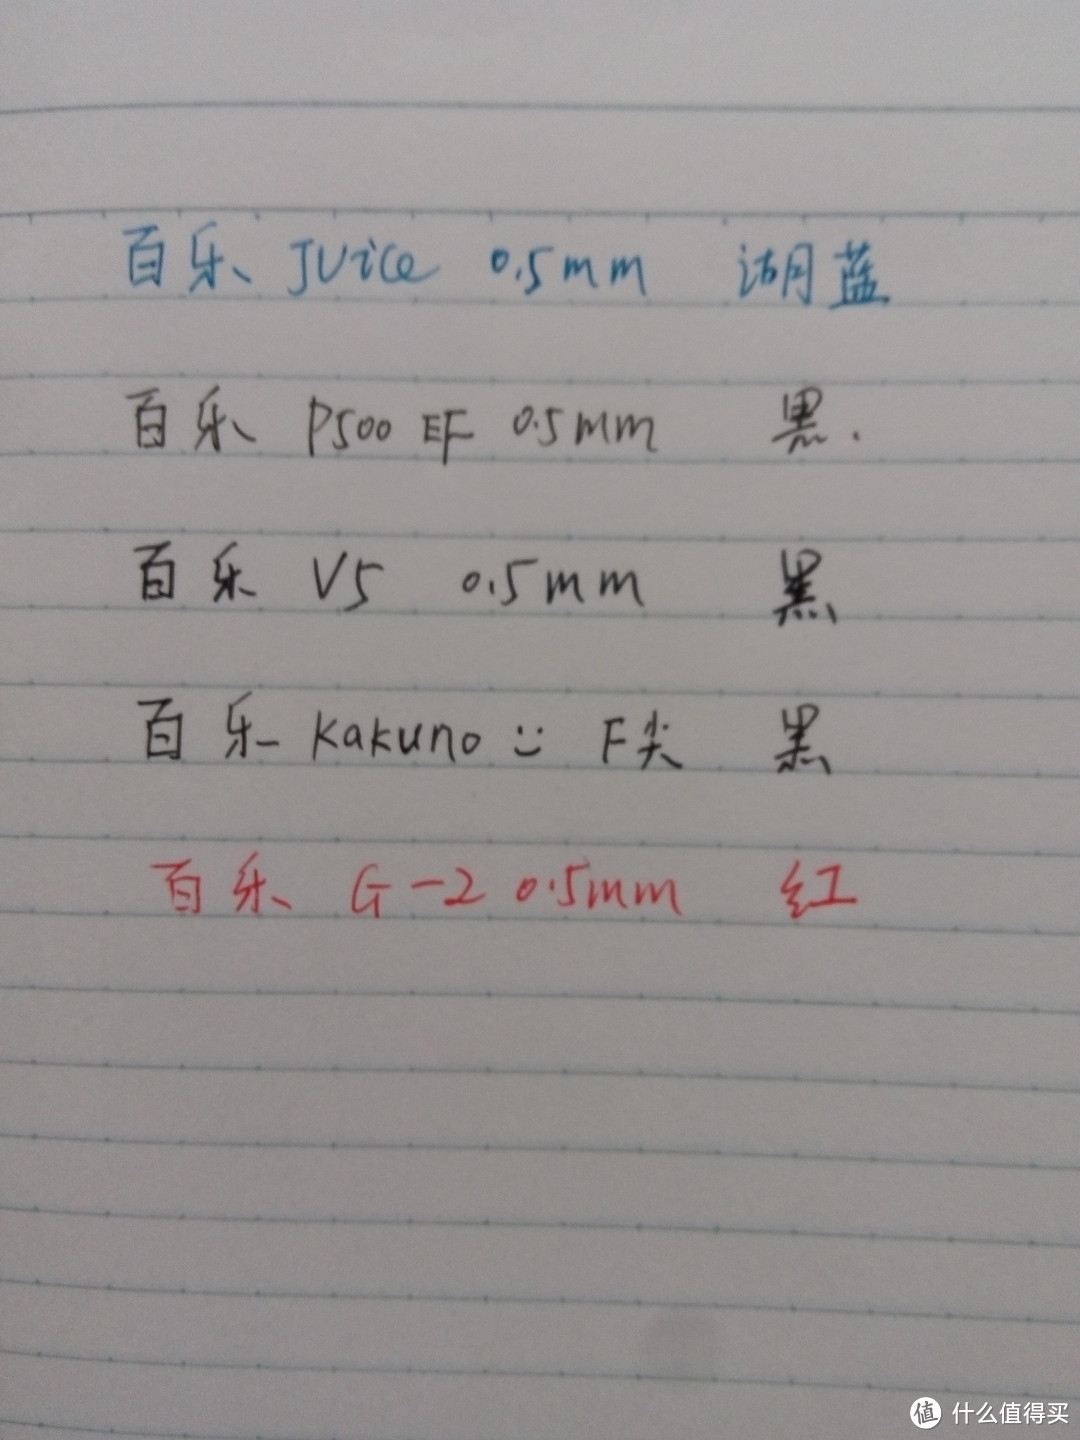 百乐 Juice 0.5mm 湖蓝
百乐 P500 EF 0.5mm 黑.
百乐 V5 0.5mm 黑
百乐 Kakuno :) F尖 黑
百乐 G-2 0.5mm 红
值 什么值得买